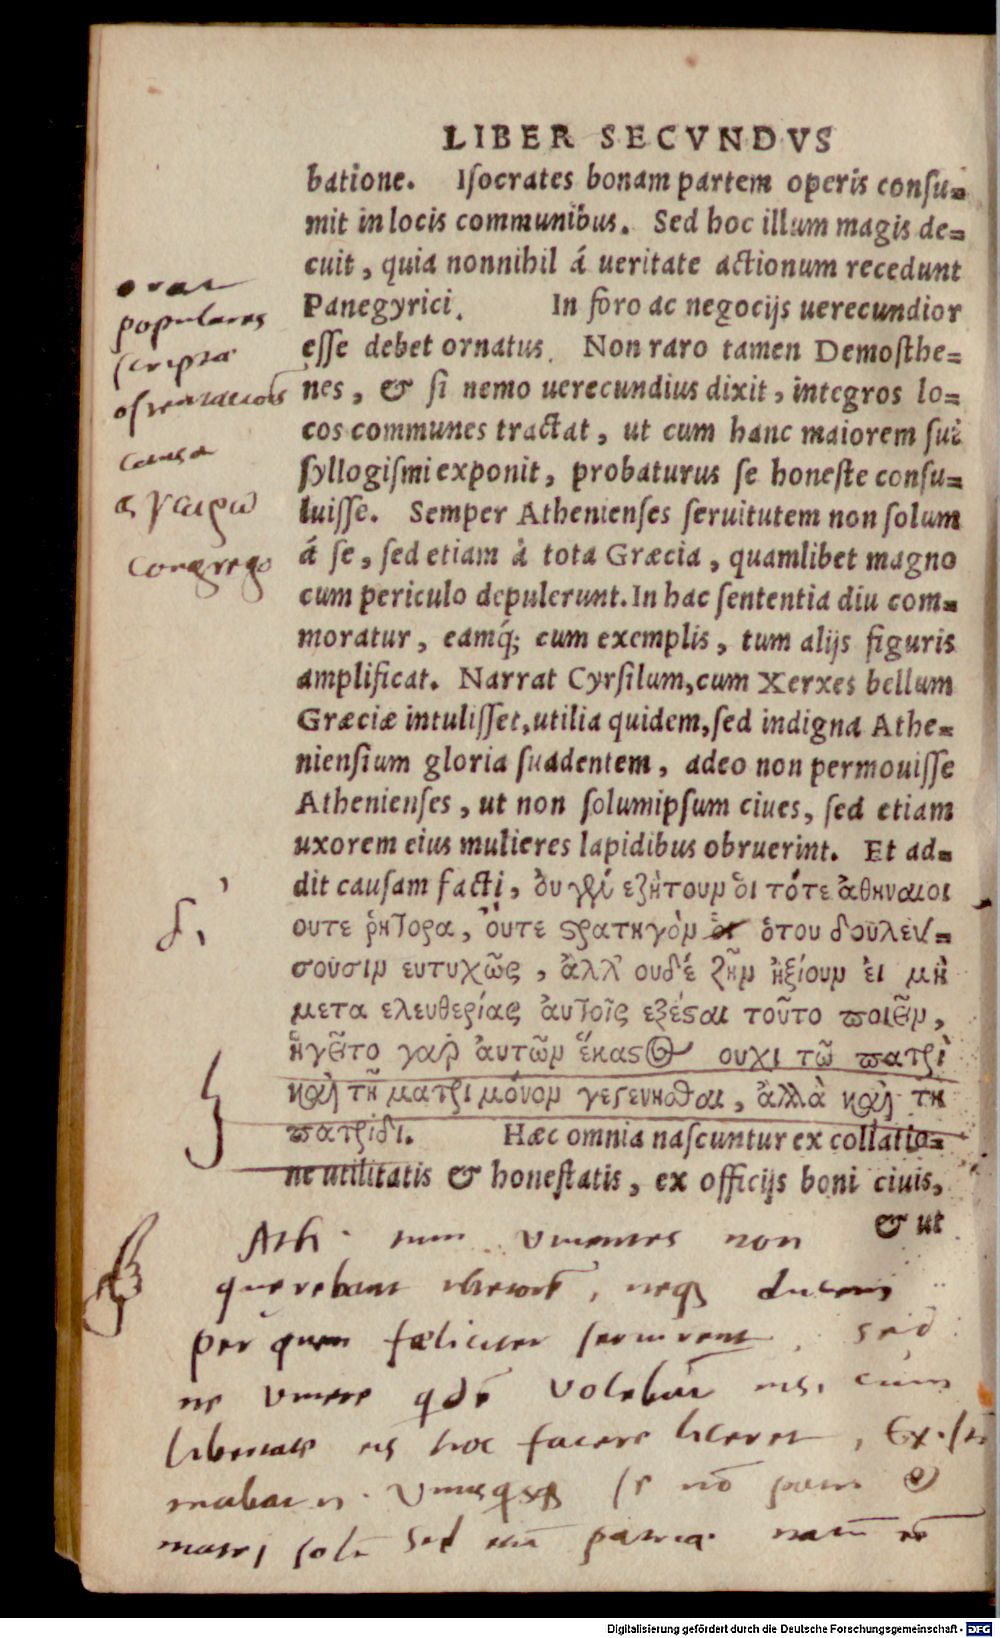 LIBER SECVNDVS
batione. Iſocrates bonam partem operis conſu=
mit in locis communibus. Sed hoc illum magis de=
cuit, quia nonnihil á ueritate actionum recedunt
Panegyrici. In foro ac negocijs uerecundior
eſſe debet ornatus. Non raro tamen Demoſthe=
nes, & ſi nemo uerecundius dixit, integros lo=
cos communes tractat, ut cum hanc maiorem ſui
ſyllogiſmi exponit, probaturus ſe honeſte conſu=
luiſſe. Semper Athenienſes ſeruitutem non ſolum
á ſe, ſed etiam à tota Græcia, quamlibet magno
cum periculo depulerunt. In hac ſententia diu com=
moratur, eamq́; cum exemplis, tum alijs figuris
amplificat. Narrat Cyrſilum, cum Xerxes bellum
Græciæ intuliſſet, utilia quidem, ſed indigna Athe=
nienſium gloria ſuadentem, adeo non permouiſſe
Athenienſes, ut non ſolum ipſum ciues, ſed etiam
uxorem eius mulieres lapidibus obruerint. Et ad=
dit cauſam facti, ὀυ γὰρ εζήτουμ ὁι τότε ἀθηναιοι
ουτε ῥήτορα, ὄυτε ϛρατηγὸμ ὁτου δουλεύ=
σουσιμ ευτυχῶς, ἀλλ' ουδέ ζῆμ ἠξίουμ ἐι μὴ
μετα ελευθερίας ἀυτοῖς εξέϛαι τοῦτο ϖοιεῖμ,
ἡγεῖτο γαρ ἀυτῶμ ἕκαϛος ουχι τῶ ϖατρὶ
καὶ τῆ ματρι μόνομ γεγενηοθαι, ἀλλὰ καὶ τῆ
ϖατρίδι. Hæc omnia naſcuntur ex collatio=
ne utilitatis & honeſtatis, ex officijs boni ciuis,
& ut
orat
populares
ſcripta
oſtentationis
causa
αγειρω
congrego
δ,
Ath. tum viventes non
querebant , neq; ducem
per quem fæliciter ſervirent, sed
ne vivere qdē volebāt cum
libertate eis hoc facere liceret,
ſe nō patri &
matri ſolū sed etiā patriæ natū
Digitalisierung gefördert durch die Deutsche Forschungsgemeinschaft - DFG